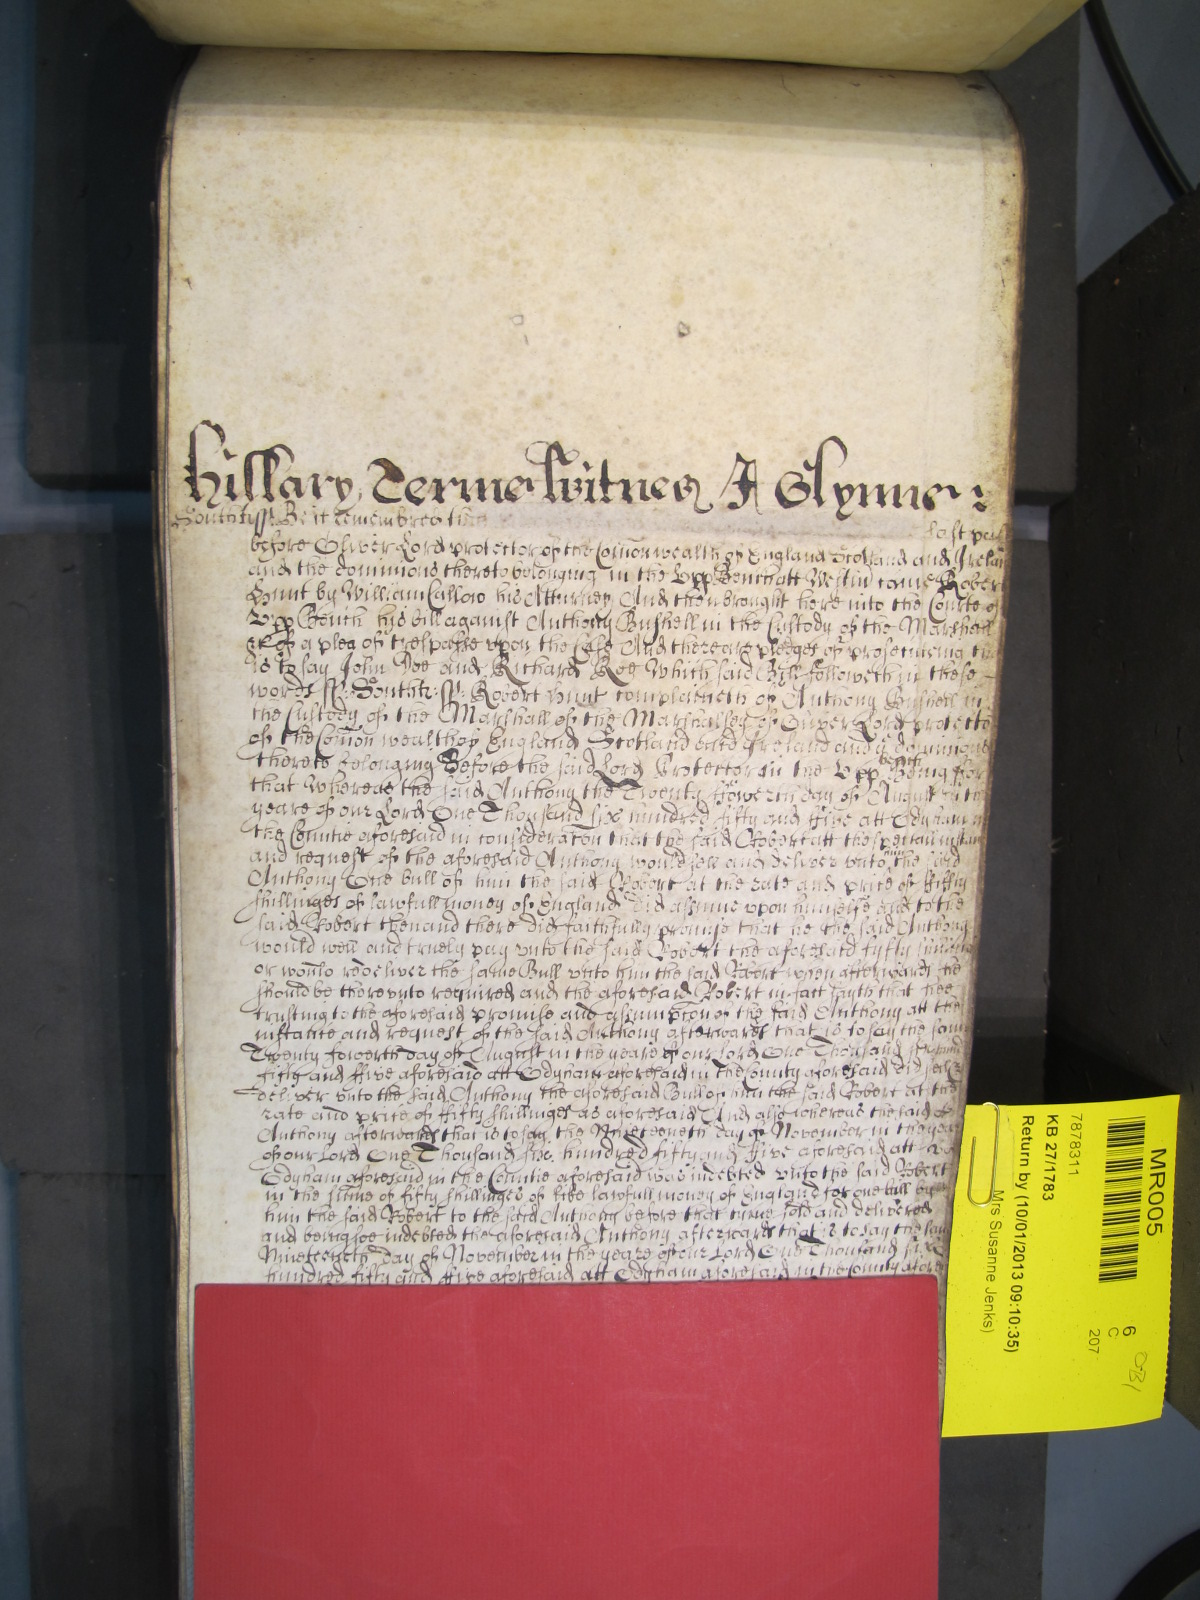 Hillary Terme Witnes J Glynne :
South ss Be it remembred th last past
before Oliver Lord protector of the Comon wealth of England Scotland and Irelan
and the dominions thereto belonging in the Upp Bench att Westm came Rober
Hunt by William Callow his Atturney And then brought here into the Courte of
Upp Bench his Bill against Anthony Bushell in the Custody of the Marshall
&c of a plea of trespasse upon the Case And there are pledges of prosecuting th
is to say John Doe and Richard Roe Which said Bill followeth in these
words ss Southt ss Robert Hunt complaineth of Anthony Bushell in
the Custody of the Marshall of the Marshallsey of Oliver Lord protecto
of the Comon wealth of England Scotland and Ireland and ye dominions
thereto belonging Before the said Lord Protector in the Upp bench being For
that Whereas the said Anthony the Twenty fowerth day of August in the
yeare of our Lord One Thousand six hundred fifty and ffive att Odyham in
the Countie aforesaid in consideracon that the said Robert att the speciall instan
and request of the aforesaid Anthony would sell and deliver unto him the said
Anthony One bull of him the said Robert at the rate and price of ffifty
shillinges of lawfull money of England did assume upon himselfe and to the
said Robert then and there did faithfully promise that he the said Anthony
would well and truely pay unto the said Robert the aforesaid fifty shilling
or would redeliver the same Bull unto him the said Robert when afterwards he
should be thereunto required and the aforesaid Robert in fact saith that hee
trusting to the aforesaid promise and assumption of the said Anthony att the
instance and request of the said Anthony afterwards that is to say the same
Twenty fowerth day of August in the yeare of our Lord One Thousand six hund
fifty and ffive aforesaid att Odyham aforesaid in the County aforesaid did sell &
deliver unto the said Anthony the aforesaid Bull of him the said Robert at the
rate and price of fifty shillinges as aforesaid And also whereas the said
Anthony afterwards that is to say the Nineteeneth day of November in the yeare
of our Lord One Thousand six hundred fifty and ffive aforesaid att
Odyham aforesaid in the Countie aforesaid was indebted unto the said Robert
in the summe of fifty shillinges of like lawfull money of England for one bull by
him the said Robert to the said Anthony before that tyme sold and delivered
and being soe indebted the aforesaid Anthony afterwards that is to say the sam
Nineteeneth day of November in the yeare of our Lord One Thousand six
hundred fifty and ffive aforesaid att Odyham aforesaid in the County afores
MR005
7878311
KB 27/1783
Return by (10/01/2013 09:10:35)
Mrs Susanne Jenks)
6
C
207